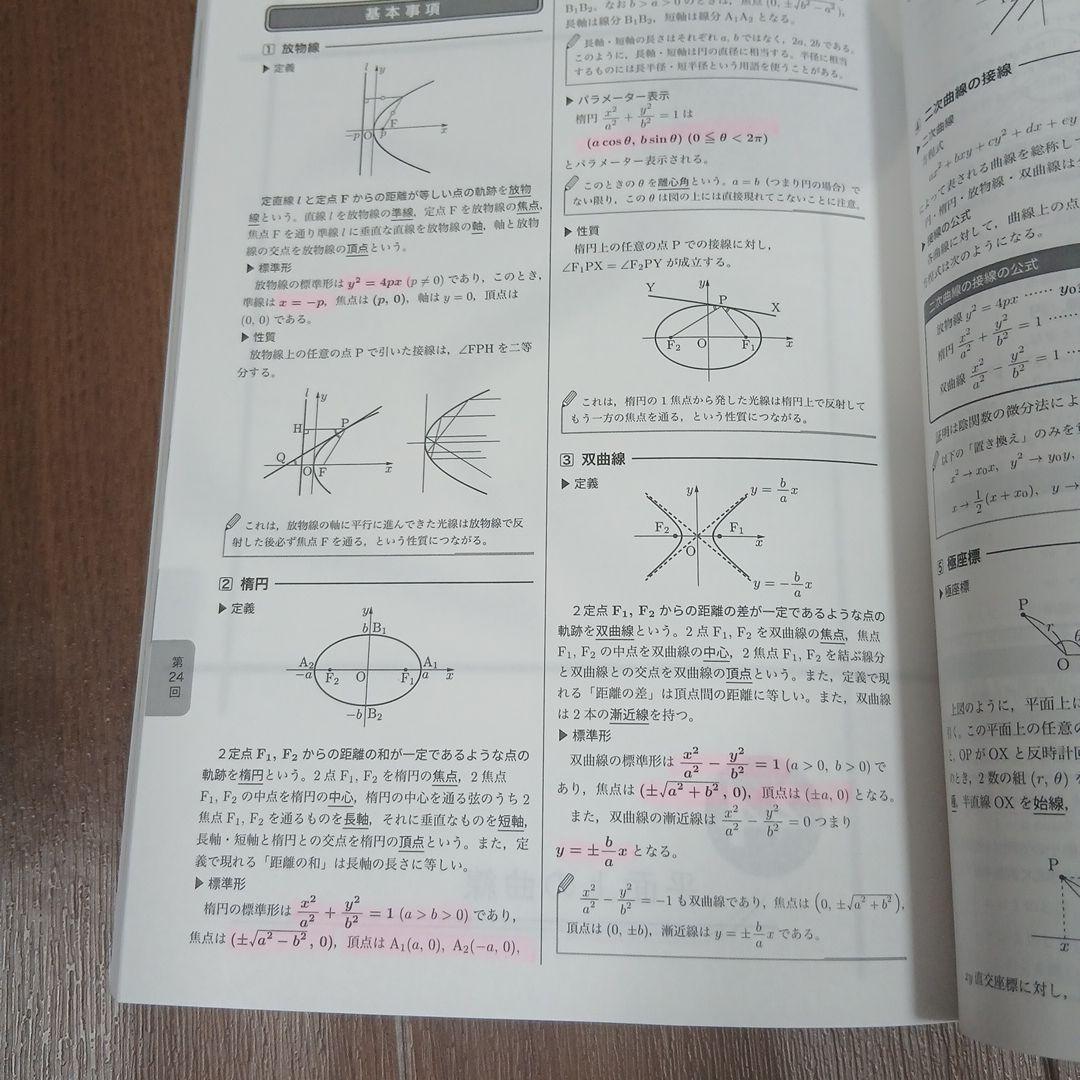 基本事項
1 放物線
▶ 定義
l y
−p O p F x
定直線 l と定点 F からの距離が等しい点の軌跡を放物
線という。直線 l を放物線の準線, 定点 F を放物線の焦点,
焦点 F を通り準線 l に垂直な直線を放物線の軸, 軸と放物
線の交点を放物線の頂点という。
▶ 標準形
放物線の標準形は y² = 4px (p ≠ 0) であり, このとき,
準線は x = −p, 焦点は (p, 0), 軸は y = 0, 頂点は
(0, 0) である。
▶ 性質
放物線上の任意の点 P で引いた接線は, ∠FPH を二等
分する。
l y
H P
Q O F x
これは, 放物線の軸に平行に進んできた光線は放物線で反
射した後必ず焦点 F を通る, という性質につながる。
2 楕円
▶ 定義
y
b B₁
A₂ A₁
−a F₂ O F₁ a x
−b B₂
第
24
回
2 定点 F₁, F₂ からの距離の和が一定であるような点の
軌跡を楕円という。2 点 F₁, F₂ を楕円の焦点, 2 焦点
F₁, F₂ の中点を楕円の中心, 楕円の中心を通る弦のうち 2
焦点 F₁, F₂ を通るものを長軸, それに垂直なものを短軸,
長軸・短軸と楕円との交点を楕円の頂点という。また, 定
義で現れる「距離の和」は長軸の長さに等しい。
▶ 標準形
楕円の標準形は x²/a² + y²/b² = 1 (a > b > 0) であり,
焦点は (±√(a² − b²), 0), 頂点は A₁(a, 0), A₂(−a, 0),
B₁B₂, なお b > a > 0 のときは, 焦点 (0, ±√(b² − a²)),
長軸は線分 B₁B₂, 短軸は線分 A₁A₂ となる。
長軸・短軸の長さはそれぞれ a, b ではなく, 2a, 2b である。
このように, 長軸・短軸は円の直径に相当する。半径に相当
するものには長半径・短半径という用語を使うことがある。
▶ パラメーター表示
楕円 x²/a² + y²/b² = 1 は
(a cos θ, b sin θ) (0 ≦ θ < 2π)
とパラメーター表示される。
このときの θ を離心角という。a = b (つまり円の場合) で
ない限り, この θ は図の上には直接現れてこないことに注意。
▶ 性質
楕円上の任意の点 P での接線に対し,
∠F₁PX = ∠F₂PY が成立する。
Y y P X
F₂ O F₁ x
これは, 楕円の 1 焦点から発した光線は楕円上で反射して
もう一方の焦点を通る, という性質につながる。
3 双曲線
▶ 定義
y y = b/a x
F₂ F₁
O x
y = −b/a x
2 定点 F₁, F₂ からの距離の差が一定であるような点の
軌跡を双曲線という。2 点 F₁, F₂ を双曲線の焦点, 焦点
F₁, F₂ の中点を双曲線の中心, 2 焦点 F₁, F₂ を結ぶ線分
と双曲線との交点を双曲線の頂点という。また, 定義で現
れる「距離の差」は頂点間の距離に等しい。また, 双曲線
は 2 本の漸近線を持つ。
▶ 標準形
双曲線の標準形は x²/a² − y²/b² = 1 (a > 0, b > 0) で
あり, 焦点は (±√(a² + b²), 0), 頂点は (±a, 0) となる。
また, 双曲線の漸近線は x²/a² − y²/b² = 0 つまり
y = ± b/a x となる。
x²/a² − y²/b² = −1 も双曲線であり, 焦点は (0, ±√(a² + b²)),
頂点は (0, ±b), 漸近線は y = ± b/a x である。
4 二次曲線の接線
▶ 二次曲線
方程式
ax² + bxy + cy² + dx + ey
によって表される曲線を総称して
円・楕円・放物線・双曲線は
▶ 接線の公式
各曲線に対して, 曲線上の点
方程式は次のようになる。
二次曲線の接線の公式
放物線 y² = 4px …… y₀
楕円 x²/a² + y²/b² = 1 ……
双曲線 x²/a² − y²/b² = 1 …
証明は陰関数の微分法によ
以下の「置き換え」のみを
x² → x₀x, y² → y₀y,
x → 1/2 (x + x₀), y →
5 極座標
▶ 極座標
P
r
O
上図のように, 平面上に
引く。この平面上の任意の
と, OP が OX と反時計回
のとき, 2 数の組 (r, θ) を
極, 半直線 OX を始線,
P
x
xy 直交座標に対し,